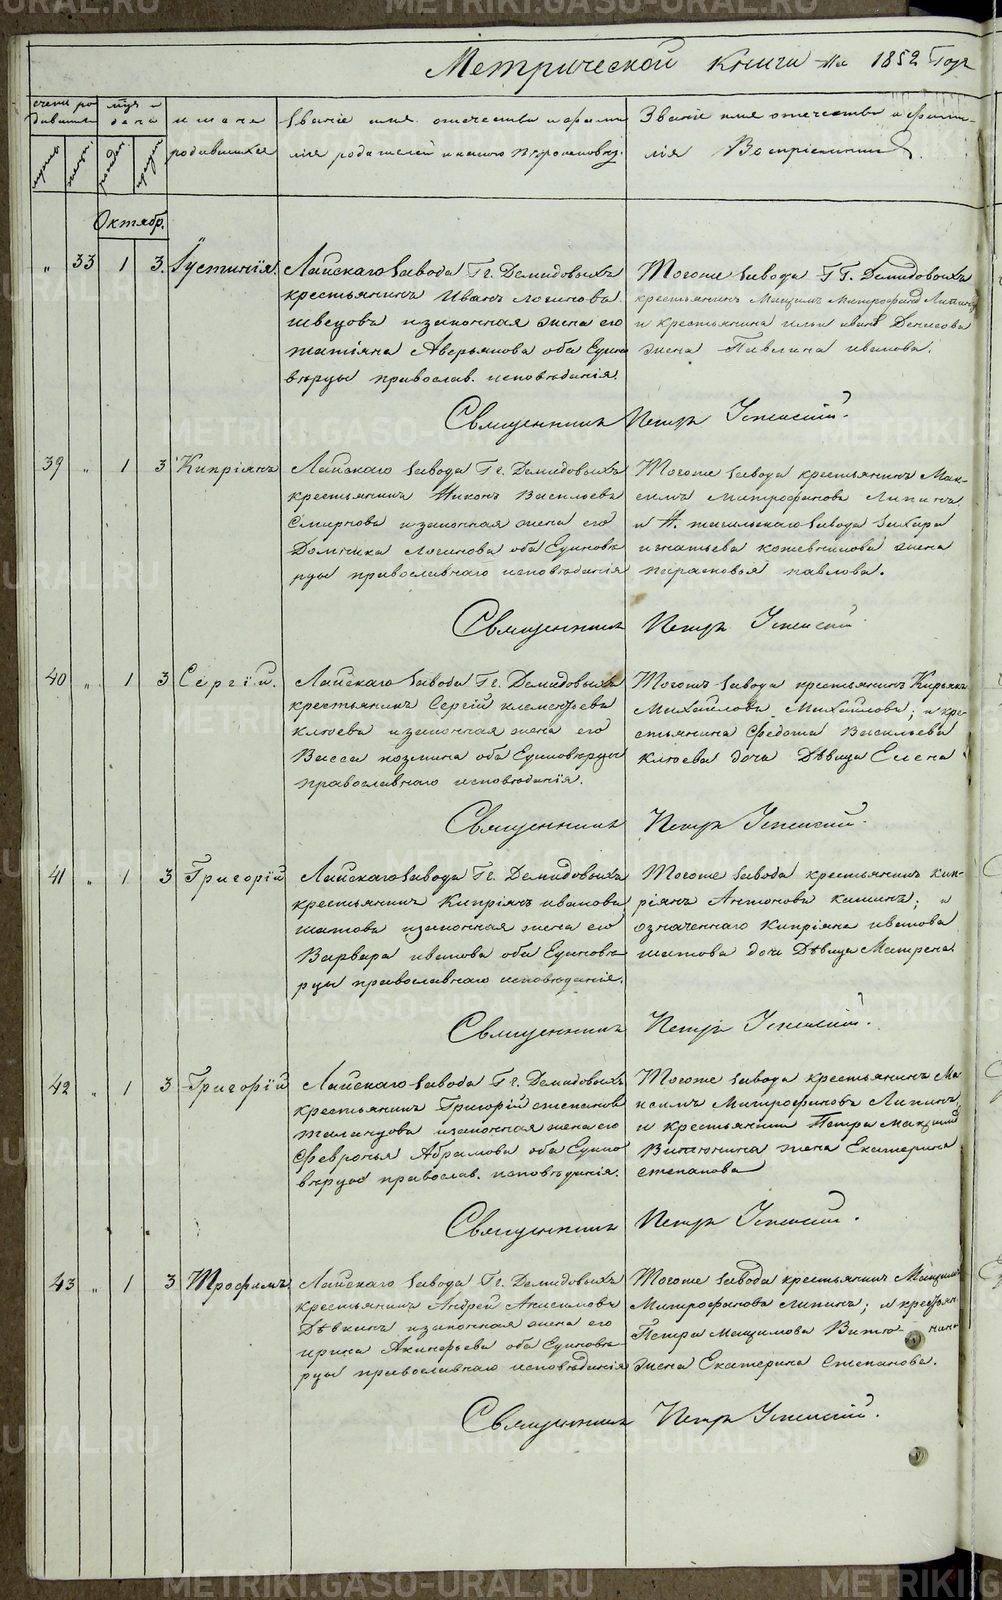 Метрической Книги на 1852 Годъ
счетъ родившихся
мѣсяц и день
имена родившихся
Званіе имя отечество и фамилія родителей и какого вѣроисповед.
Званіе имя отечество и фамилія Воспріемниковъ
Октябр.
" 33 1 3. Іустинія.
Лайскаго завода Гг. Демидовыхъ
крестьянинъ Иванъ Логиновъ
Швецовъ и законная жена его
Татіяна Аверьянова оба Едино
вѣрцы православ. исповѣданія.
Тогоже завода ГГ. Демидовыхъ
крестьянинъ Максимъ Митрофановъ Липинъ
и крестьянина Ильи Денисова
жена Павлина Иванова.
Священникъ Петръ Успенскій.
39 " 1 3 Кипріянъ
Лайскаго завода Гг. Демидовыхъ
крестьянинъ Никонъ Васильевъ
Смирновъ и законная жена его
Домника Логинова оба Единовѣ
рцы православнаго исповѣданія
Тогоже завода крестьянинъ Мак-
симъ Митрофановъ Липинъ
и Н. тагильскаго завода Захара
игнатьева кожевникова жена
парасковья павлова.
Священникъ Петръ Успенскій
40 " 1 3 Сергій.
Лайскаго завода Гг. Демидовыхъ
крестьянинъ Сергій клементьевъ
клюевъ и законная жена его
Васса козмина оба Единовѣрцы
православнаго исповѣданія.
Тогожъ завода крестьянинъ Кирьякъ
Михайловъ Михайловъ; и кре-
стьянина Федота Васильева
клюева дочь Дѣвица Елена
Священникъ Петръ Успенскій.
41 " 1 3 Григорій
Лайскаго завода Гг. Демидовыхъ
крестьянинъ Кипріянъ ивановъ
шатовъ и законная жена его
Варвара иванова оба Единовѣ
рцы православнаго исповѣданія.
Тогоже завода крестьянинъ кип-
ріянъ Антоновъ кашинъ; и
означеннаго Кипріяна иванова
шатова дочь Дѣвица Матрена.
Священникъ Петръ Успенскій.
42 " 1 3 Григорій
Лайскаго завода Гг. Демидовыхъ
крестьянинъ Григорій степановъ
и законная жена его
Февронья Абрамова оба Едино
вѣрцы православ. исповѣданія.
Тогоже завода крестьянинъ Ма
ксимъ Митрофановъ Липинъ,
и крестьянина Петра Максимова
Витюнина жена Екатерина
степанова
Священникъ Петръ Успенскій.
43 " 1 3 Трофимъ.
Лайскаго завода Гг. Демидовыхъ
крестьянинъ Андрей Анисимовъ
Дѣвкинъ и законная жена его
ирина Акинфьева оба Единовѣ
рцы православнаго исповѣданія
Тогоже завода крестьянинъ Максимъ
Митрофановъ липинъ; и крестьян.
Петра Максимова Витюнина
жена Екатерина Степанова.
Священникъ Петръ Успенскій.
METRIKI.GASO-URAL.RU